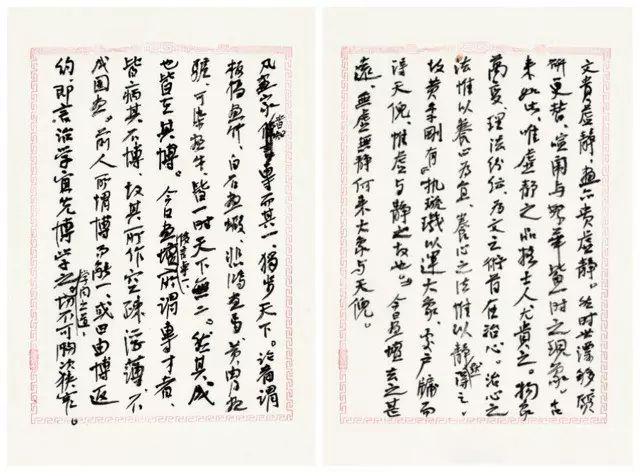 文贵虚静，画亦贵虚静。然时世漂移
更替，喧闹与华皆时之现象。古
来如此，唯虚静之品格士人尤贵之。物象
万变，理法纷纭，为文之术首在治心。治心之
法惟以养心为宜，养心之法惟以静澄之。
故黄季刚有“执璇玑以运大象，处户牖而
得天倪，惟虚与静之故也”。今日画坛去之甚
远，无虚无静何来大象与天倪。
凡画家当知专而其一，独步天下。论者谓
板桥画竹，白石画虾，悲鸿画马，黄胄画
驴，可染牛，皆一时天下无二。然其成
也皆在其博。今日画坛所谓专才者，
皆病其不博，故其所作空疏浮薄，不
成图画。前人所谓博而能一，或曰由博返
约，即言治学宜先博学之，切不可胸次狭窄。